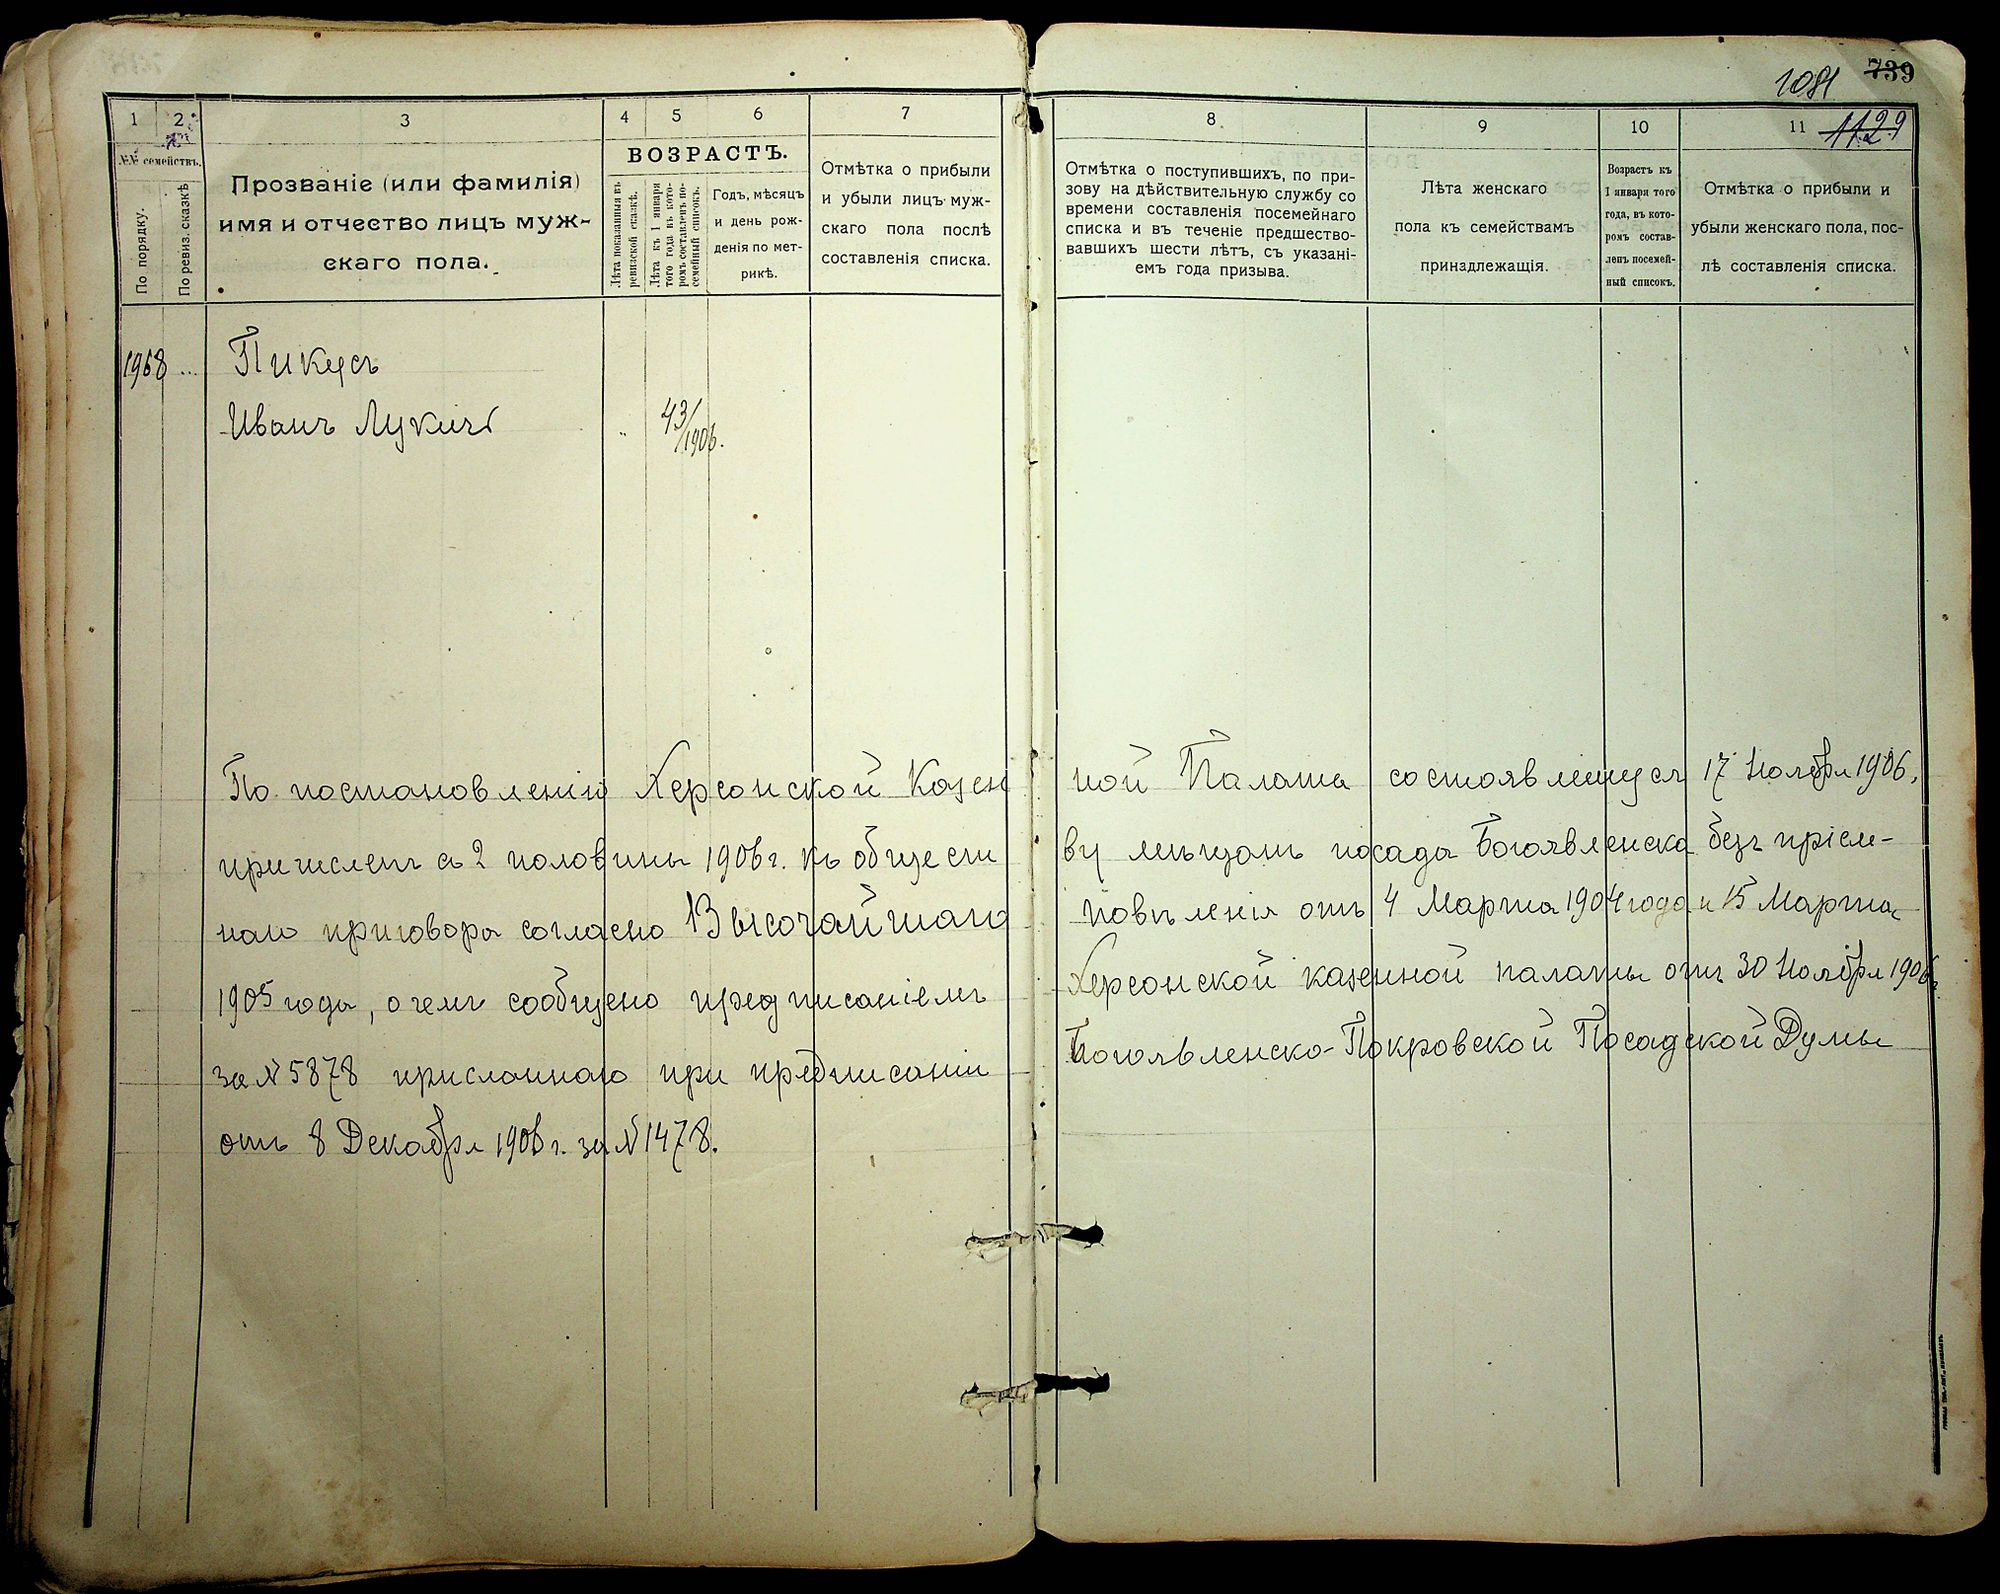 739
1081
1129
1
2
3
4
5
6
7
№№ семействъ.
ВОЗРАСТЪ.
По порядку.
По ревиз. сказкѣ
Прозваніе (или фамилія)
имя и отчество лицъ муж-
скаго пола.
Лѣта показанныя въ
ревизской сказкѣ.
Лѣта къ 1 января
того года въ кото-
ромъ составленъ по-
семейный списокъ.
Годъ, мѣсяцъ
и день рож-
денія по мет-
рикѣ.
Отмѣтка о прибыли
и убыли лицъ муж-
скаго пола послѣ
составленія списка.
8
9
10
11
Отмѣтка о поступившихъ, по при-
зову на дѣйствительную службу со
времени составленія посемейнаго
списка и въ теченіе предшество-
вавшихъ шести лѣтъ, съ указані-
емъ года призыва.
Лѣта женскаго
пола къ семействамъ
принадлежащія.
Возрастъ къ
1 января того
года, въ кото-
ромъ состав-
ленъ посемей-
ный списокъ.
Отмѣтка о прибыли и
убыли женскаго пола, пос-
лѣ составленія списка.
1968
Пикусъ
Иванъ Лукичъ
43/1906.
По постановленію Херсонской Казен
ной Палаты состоявшемуся 17 Ноября 1906,
причисленъ съ 2 половины 1906 г. къ обществ
ву мѣщанъ посада Богоявленска безъ пріем-
наго приговора согласно Высочайшаго
повѣленія отъ 4 Марта 1904 года и 15 Марта
1905 года, о чемъ сообщено предписаніемъ
Херсонской казенной палаты отъ 30 Ноября 1906 г.
за № 5878 присланнаго при предписаніи
Богоявленско-Покровской Посадской Думы
отъ 8 Декабря 1906 г. за № 1478.